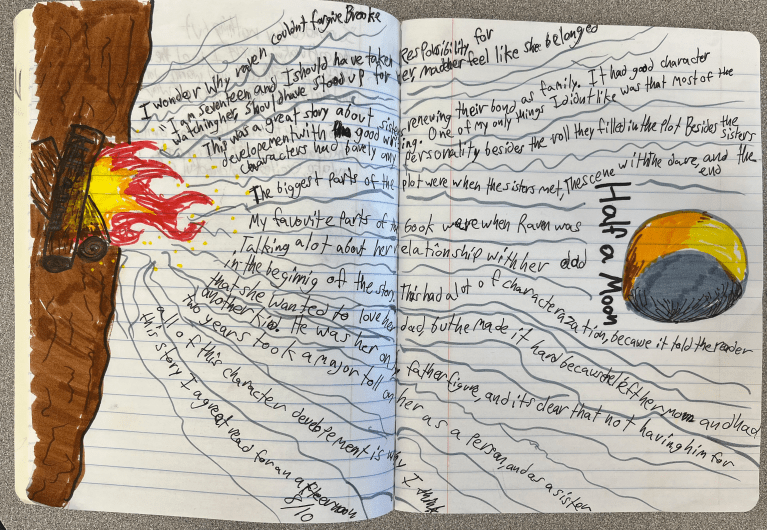 I wonder why raven couldn't forgive Brooke
"I am seventeen and I should have taken Responsibility for
watching her, should have stood up for her, made her feel like she belonged
This was a great story about sisters renewing their bond as family. It had good character
developement with good writing. One of my only things I didnt like was that most of the
characters had barely any personality besides the roll they filled in the plot Besides the sisters
The biggest parts of the plot were when the sisters met, The scene with the dare, and the end
My favorite parts of the book were when Raven was
Talking alot about her relationship with her dad
in the beginnig of the story. This had a lot of characterazation, because it told the reader
that she wanted to love her dad, but he made it hard because he left her mom and had
another kid. He was her only father figure, and it's clear that not having him for
two years took a major toll on her as a person, and as a sister
all of this character development is why I think
this story I a great read for an afternoon
8/10
Half a Moon